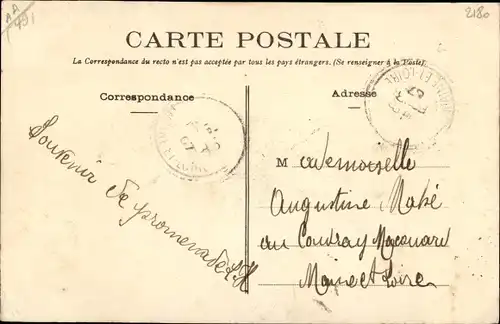 AA
491
2180
CARTE POSTALE
La Correspondance du recto n'est pas acceptée par tous les pays étrangers. (Se renseigner à la Poste).
Correspondance
Adresse
Souvenir de promenade
Mademoiselle
Augustine Mahé
au Coudray Macouard
Maine et Loire
ET-LOIRE